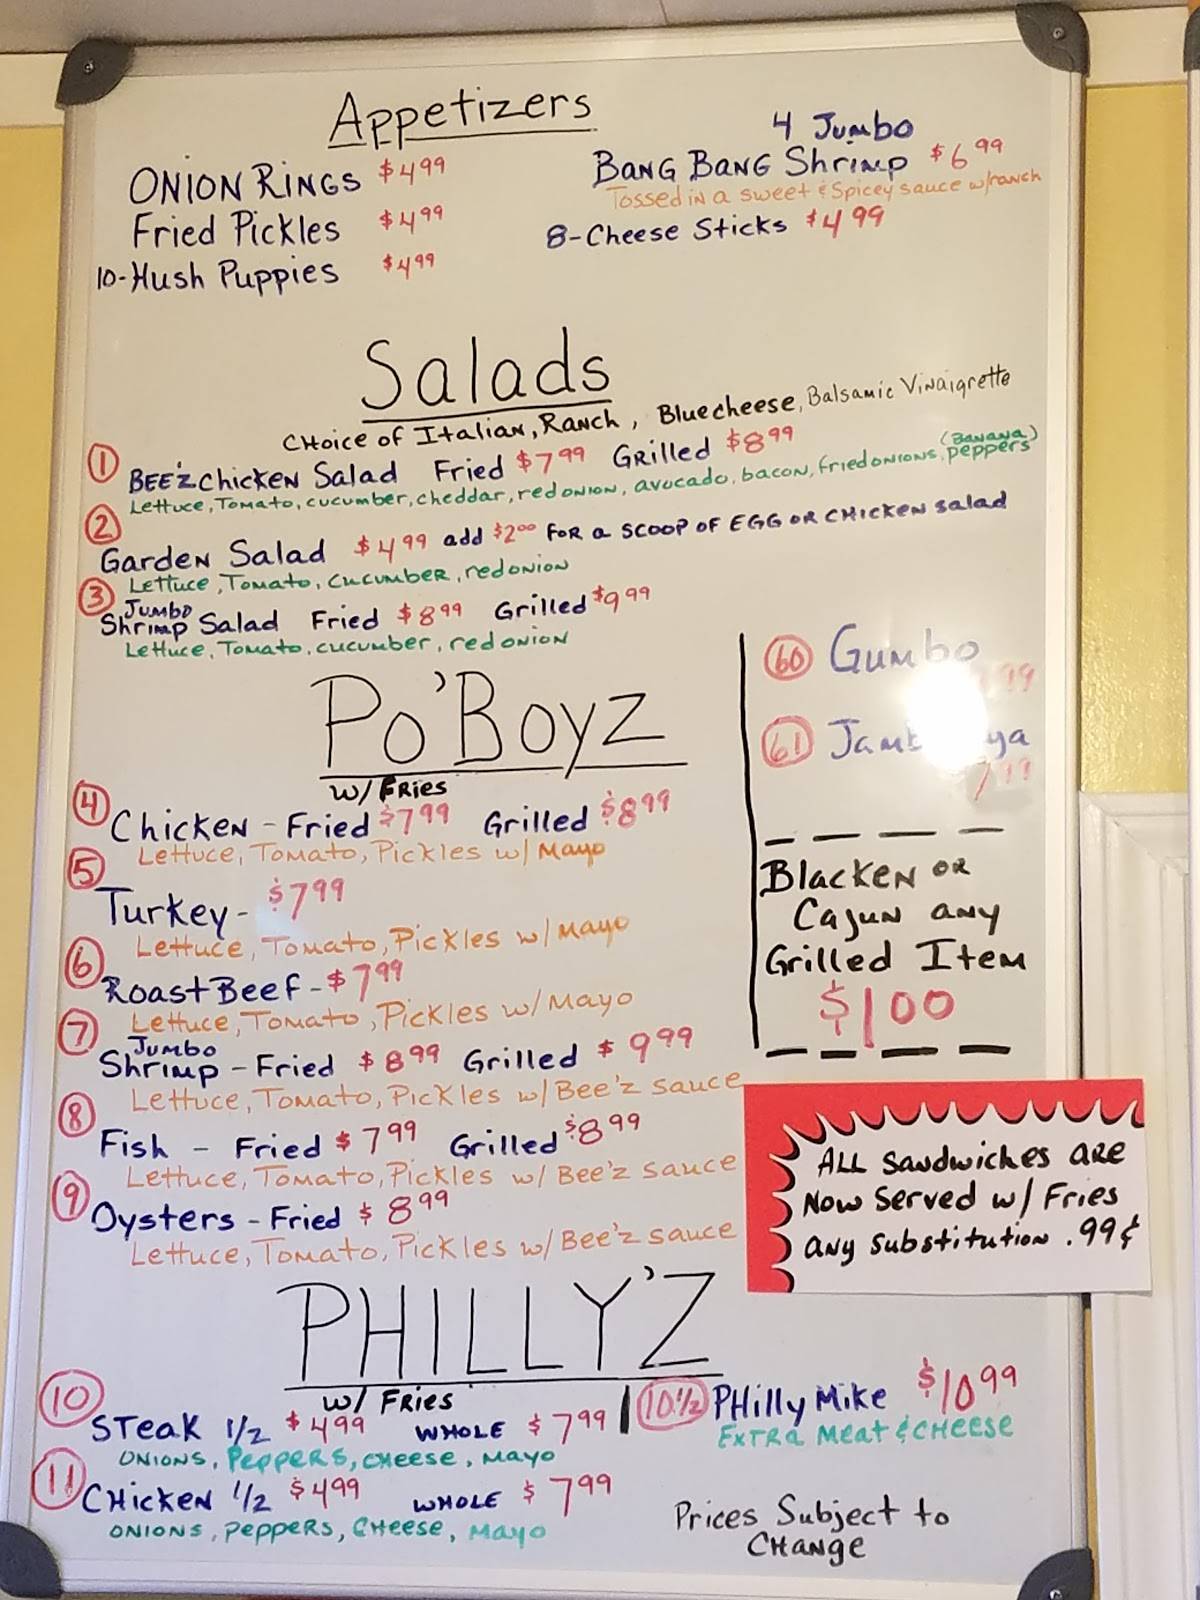 Appetizers
ONION RINGS $4.99
Fried Pickles $4.99
10-Hush Puppies $4.99
4 Jumbo
BANG BANG Shrimp $6.99
Tossed in a sweet & Spicey sauce w/ranch
8-Cheese Sticks $4.99
Salads
CHoice of Italian, Ranch, Bluecheese, Balsamic Vinaigrette
1 BEE'z Chicken Salad Fried $7.99 Grilled $8.99
Lettuce, Tomato, cucumber, cheddar, red onion, avocado, bacon, fried onions, (Banana) peppers
2 Garden Salad $4.99 add $2.00 for a scoop of EGG or CHicken Salad
Lettuce, Tomato, Cucumber, red onion
3 Jumbo
Shrimp Salad Fried $8.99 Grilled $9.99
Lettuce, Tomato, cucumber, red onion
Po'Boyz
w/ Fries
4 Chicken - Fried $7.99 Grilled $8.99
Lettuce, Tomato, Pickles w/ Mayo
5 Turkey - $7.99
Lettuce, Tomato, Pickles w/ Mayo
6 Roast Beef - $7.99
Lettuce, Tomato, Pickles w/ Mayo
7 Jumbo
Shrimp - Fried $8.99 Grilled $9.99
Lettuce, Tomato, Pickles w/ Bee'z sauce
8 Fish - Fried $7.99 Grilled $8.99
Lettuce, Tomato, Pickles w/ Bee'z sauce
9 Oysters - Fried $8.99
Lettuce, Tomato, Pickles w/ Bee'z sauce
60 Gumbo
61
Blacken or
Cajun any
Grilled Item
$1.00
ALL Sandwiches are
Now Served w/ Fries
any substitution .99¢
PHILLY'Z
w/ Fries
10 Steak 1/2 $4.99 WHOLE $7.99
Onions, Peppers, cheese, Mayo
10 1/2 PHilly Mike $10.99
Extra Meat & CHeese
11 CHicken 1/2 $4.99 WHOLE $7.99
Onions, peppers, CHeese, Mayo
Prices Subject to
CHange